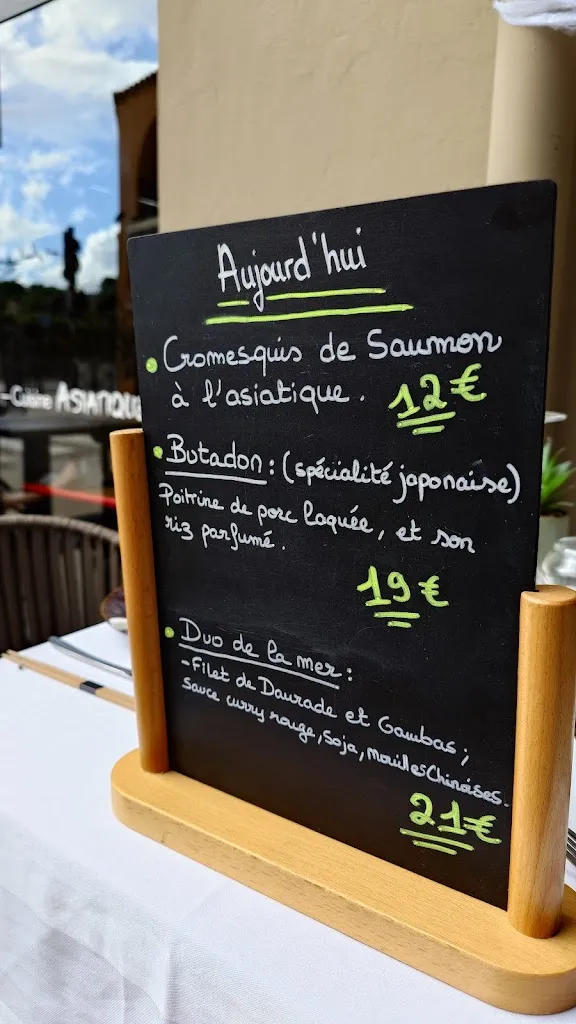 Aujourd'hui
Cromesquis de Saumon
à l'asiatique.
12€
Butadon: (spécialité japonaise)
Poitrine de porc laquée, et son
riz parfumé.
19€
Duo de la mer:
- Filet de Daurade et Gambas;
Sauce curry rouge, Soja, nouilles Chinoises.
21€
Cuisine ASIATIQUE